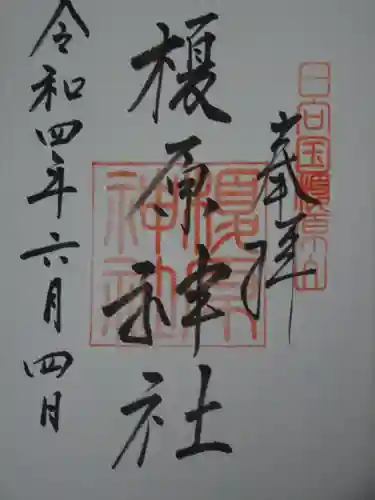 奉拝
日向国
榎原神社
榎原神社
令和四年六月四日